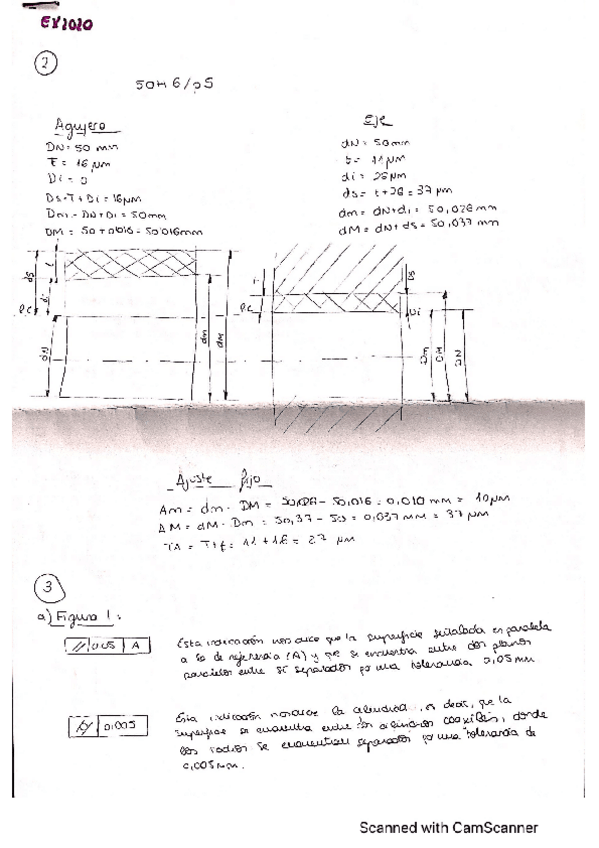 EX2020
2
50H6/p5
Agujero
DN= 50 mm
T= 16 µm
Di = 0
Ds=T+Di=16µm
Dm = DN+Di = 50mm
DM = 50+0'016 = 50'016mm
Eje
dN= 50mm
t= 11µm
di= 26µm
ds= t+26= 37 µm
dm= dN+di= 50,026 mm
dM= dN+ds= 50,037 mm
ds
t
di
l.c
dN
dm
dM
T
l.c
Ds
Di
Dm
DM
DN
Ajuste fijo
Am= dm - DM = 50,026 - 50,016 = 0,010 mm = 10µm
AM= dM - Dm = 50,37 - 50 = 0,037 mm = 37 µm
TA = T+t= 11+16= 27 µm
3
a) Figura 1:
// 0,05 A
Esta indicación nos dice que la superficie señalada es paralela
a la de referencia (A) y que se encuentra entre dos planos
paralelos entre sí separados por una tolerancia 0,05mm
0,005
Esta indicación nos dice la cilindricidad, es decir, que la
superficie se encuentra entre dos cilindros coaxiales, donde
los radios se encuentran separados por una tolerancia de
0,005mm.
Scanned with CamScanner